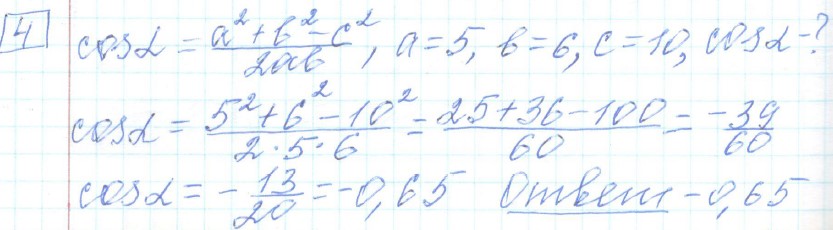 4 cosα = (a² + b² - c²)/(2ab), a = 5, b = 6, c = 10, cosα - ?
cosα = (5² + 6² - 10²)/(2·5·6) = (25 + 36 - 100)/60 = -39/60
cosα = -13/20 = -0,65 Ответ -0,65